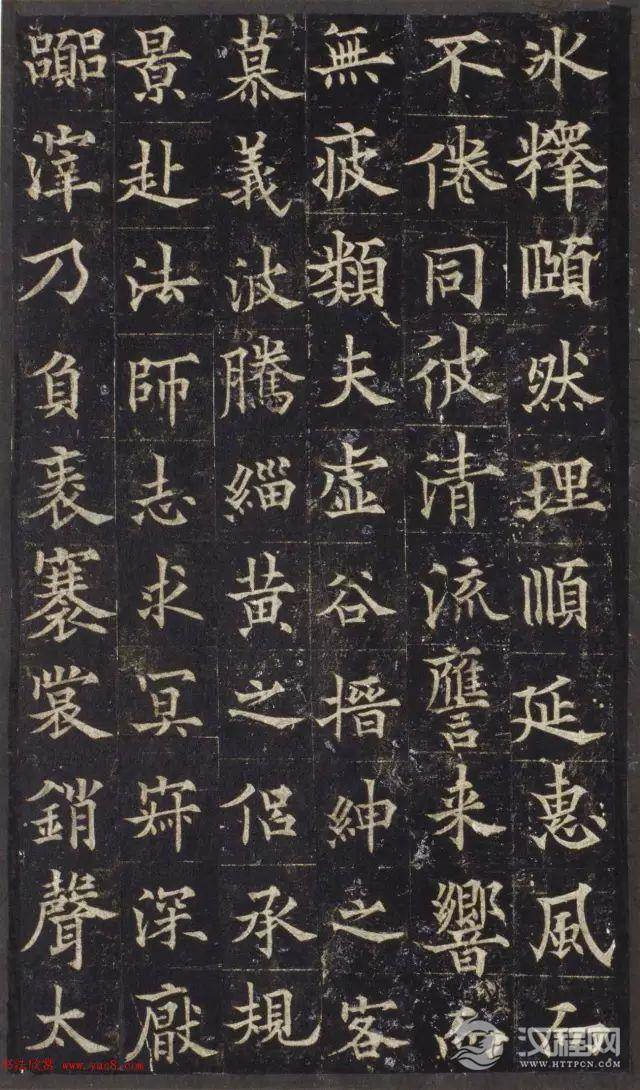 冰釋頤然理順延惠風而
不倦同彼清流譍来響而
無疲類夫虛谷搢紳之客
慕義波騰緇黃之侶承規
景赴法師志求冥寂深厭
囂滓乃負袠褰裳銷聲太
书法欣赏 www.yac8.com
汉程网
WWW.HTTPCN.COM